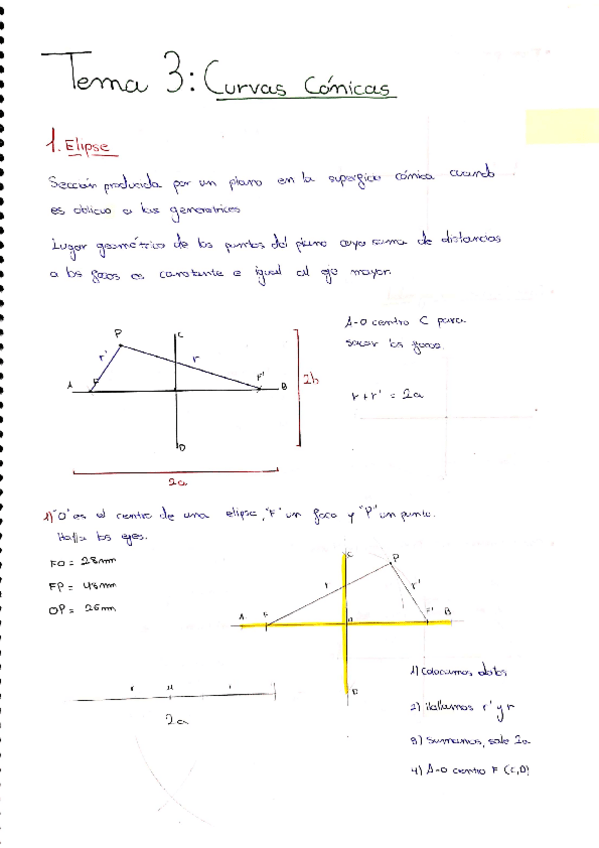 Tema 3: Curvas Cónicas
1. Elipse
Sección producida por un plano en la superficie cónica cuando
es oblicuo a las generatrices
Lugar geométrico de los puntos del plano cuya suma de distancias
a los focos es constante e igual al eje mayor.
P
C
A-O centro C para
sacar los focos.
r'
r
A
F
F'
B
2b
r+r' = 2a
D
2a
1) "O" es el centro de una elipse, "F" un foco y "P" un punto.
Halla los ejes.
FO = 28mm
FP = 48mm
OP = 26mm
C
P
r
r'
A
F
F'
B
1) Colocamos datos
2) Hallamos r' y r
3) Sumamos, sale 2a
4) A-O centro F (C,D)
2a